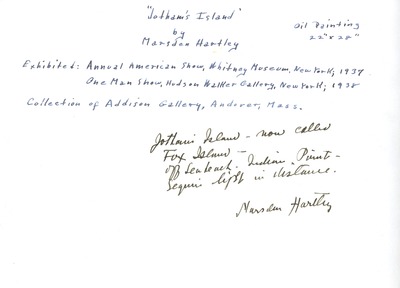 "Jotham's Island"
by
Marsden Hartley
Oil Painting
22" x 28"
Exhibited: Annual American Show, Whitney Museum, New York; 1937
One Man Show, Hudson Walker Gallery, New York; 1938
Collection of Addison Gallery, Andover, Mass.
Jotham's Island - now called
Fox Island -
off Seabeach. Indian Point -
Seguin light in distance.
Marsden Hartley